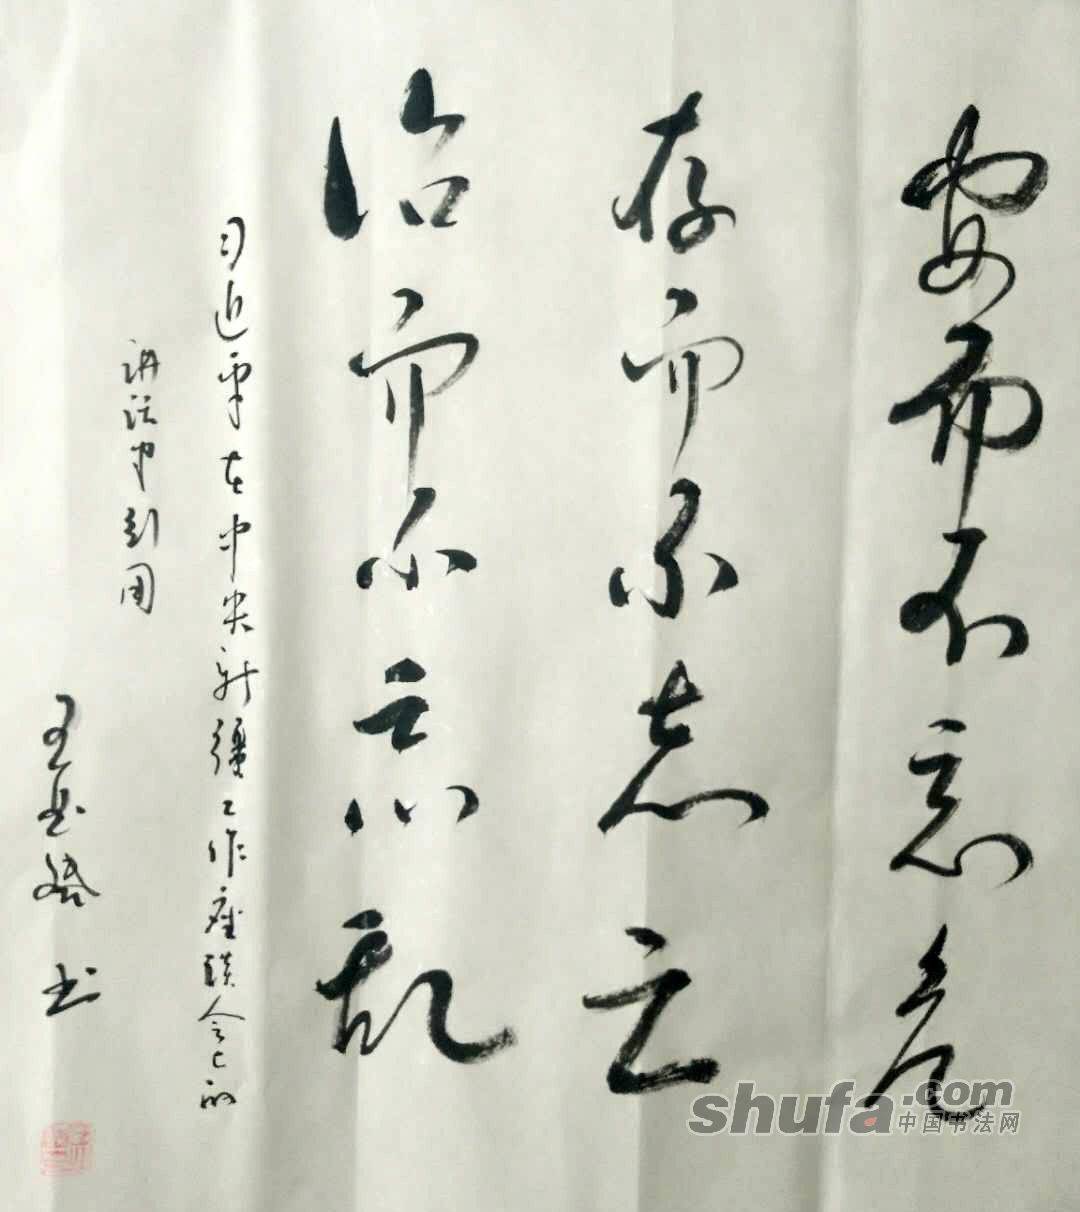 安而不忘危
存而不忘亡
治而不忘乱
习近平在中央新疆工作座谈会上的
讲话中引用
王 书
shufa.com
中国书法网